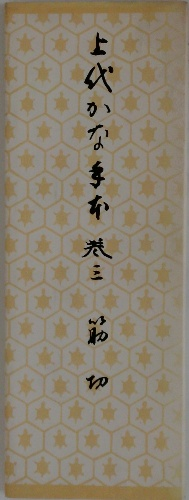 上代かな手本 巻三 筋切